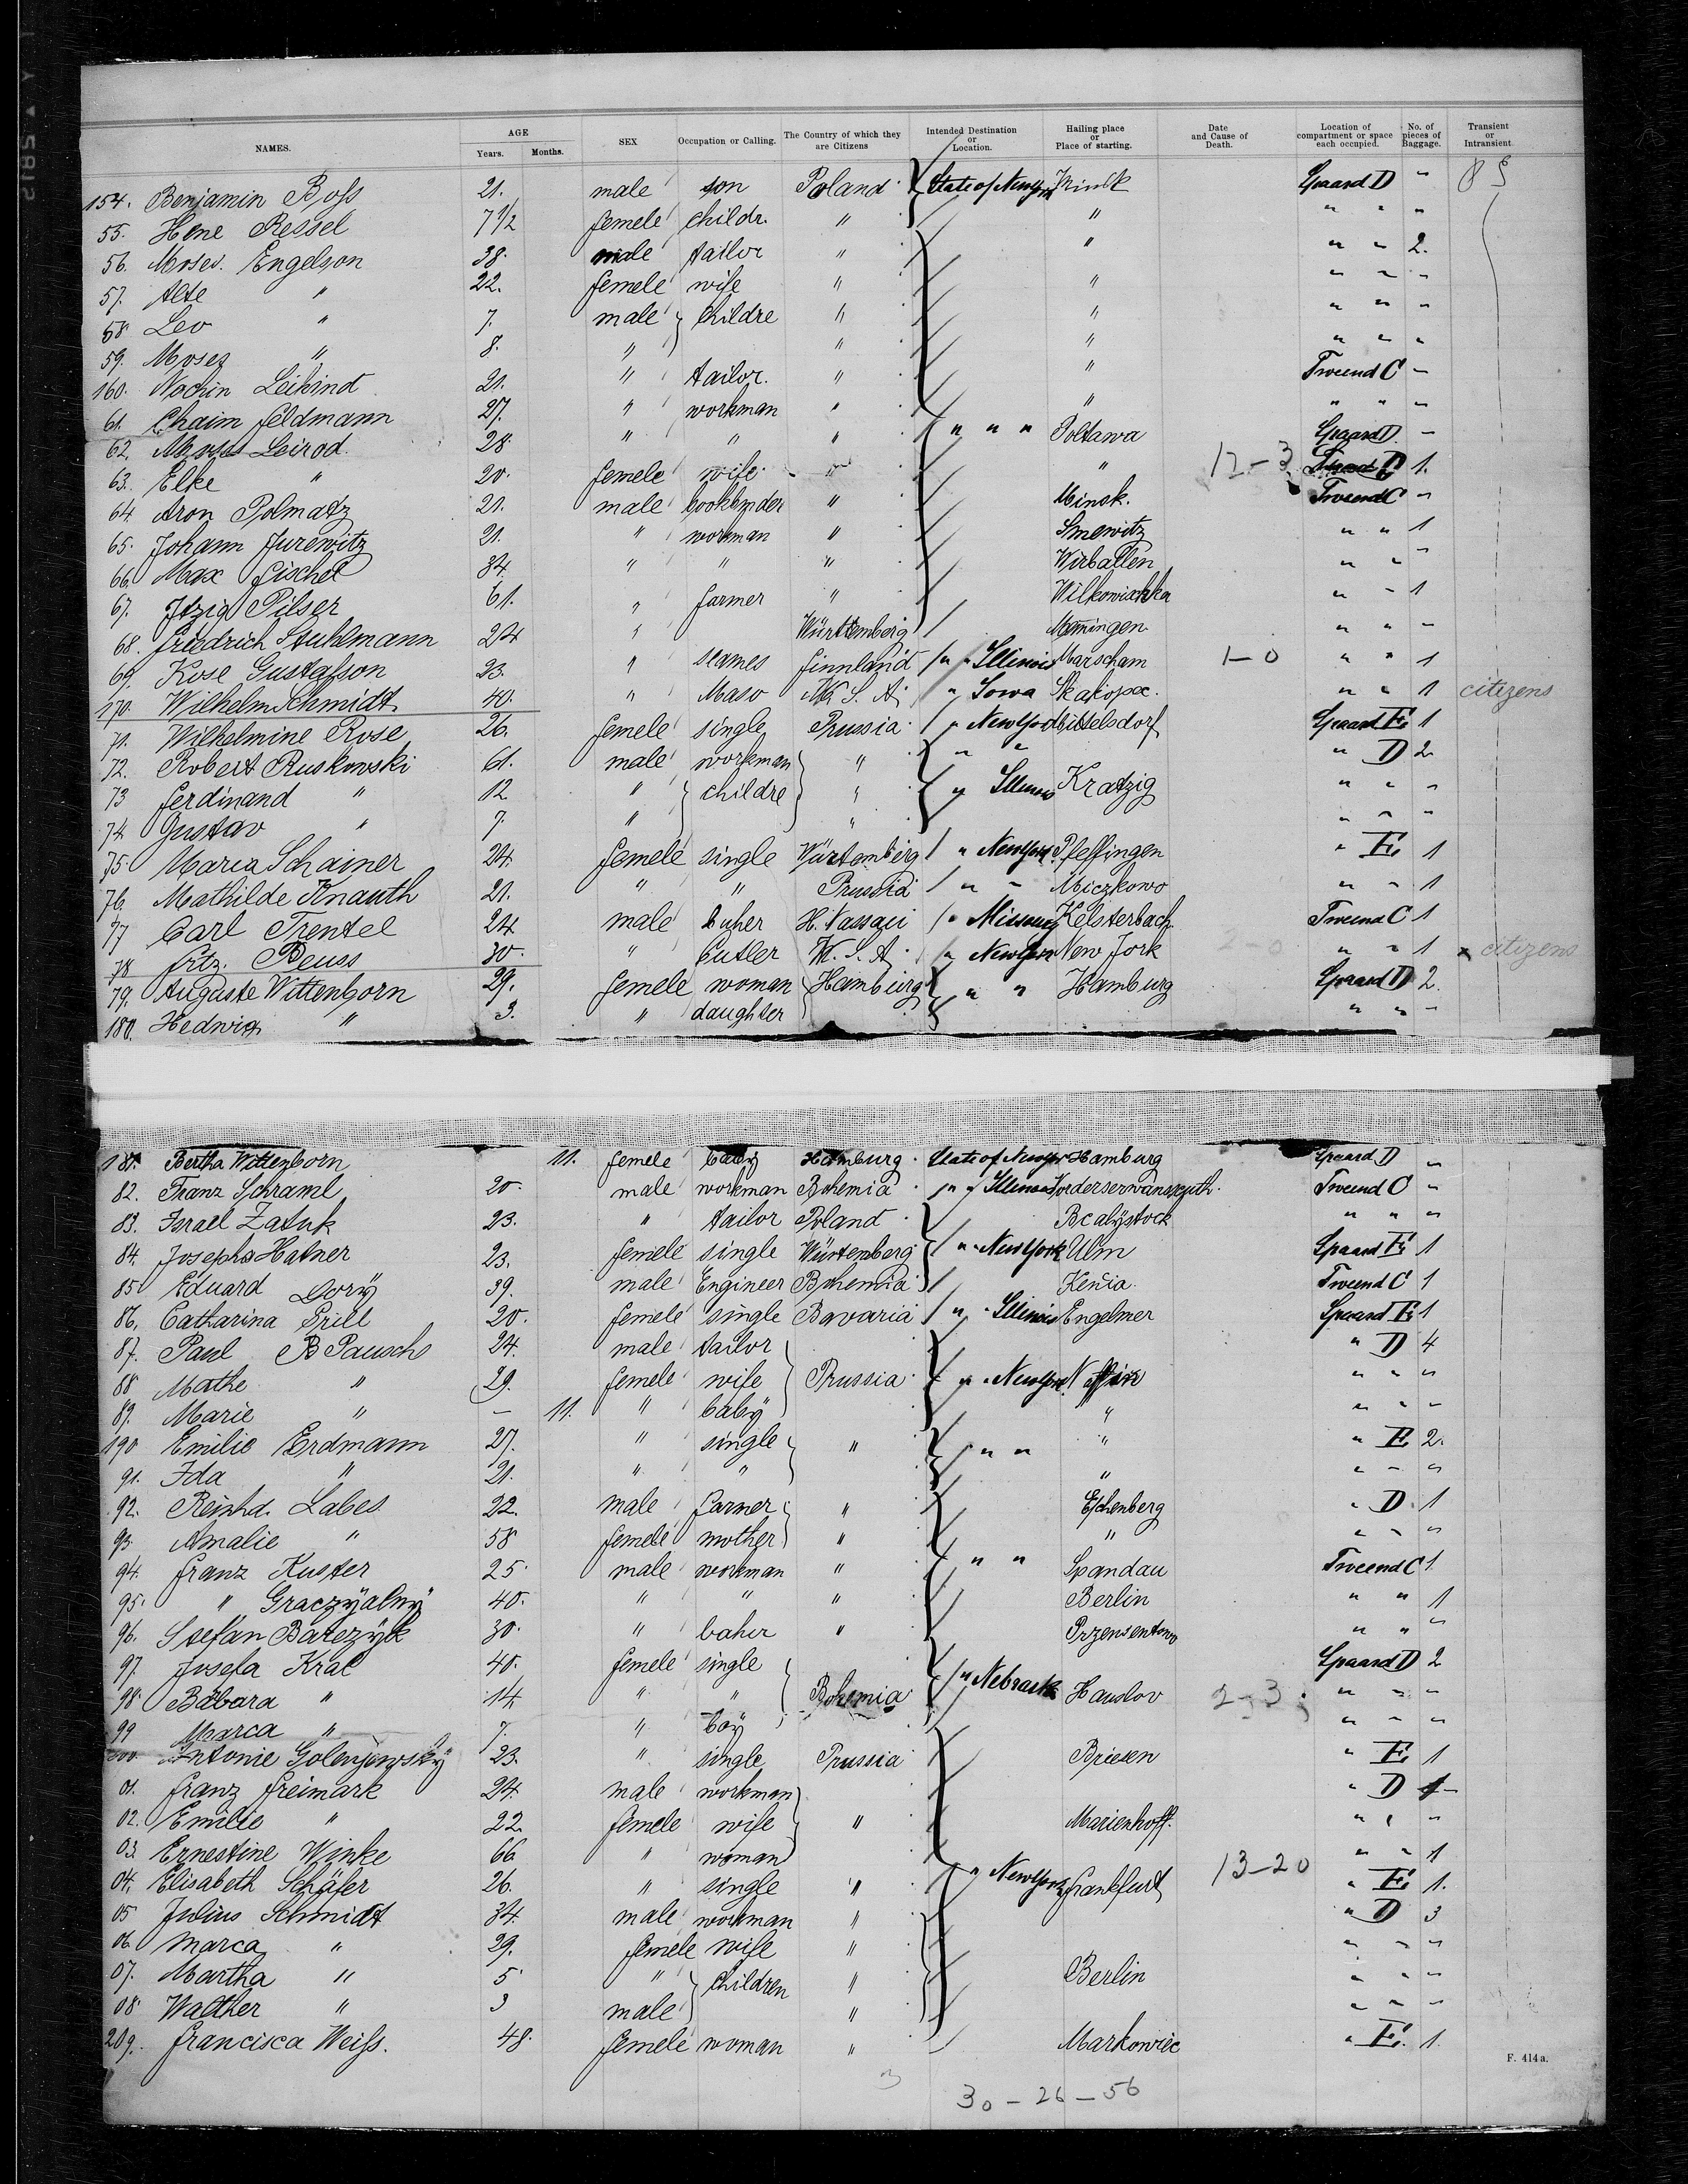 NAMES. AGE Years. Months. SEX Occupation or Calling. The Country of which they are Citizens Intended Destination or Location. Hailing place or Place of starting. Date and Cause of Death. Location of compartment or space each occupied. No. of pieces of Baggage. Transient or Intransient.
154. Benjamin 21. male son Poland State of New York Minsk D "
55. Hene Ressel 7 1/2 femele childr. " " " " "
56. Moses Engelson 38. male tailor " " " " 2.
57. Alte " 22. femele wife " " " " "
58 Leo " 7. male childre " " " " "
59. Moses " 8. " " " " " "
160. Nochin Leikind 21. " tailor. " " Tweend C "
61. Chaim Feldmann 27. " workman " " " " "
62. Leirod. 28. " " " " " " Poltawa D. "
63. Elke " 20. femele wife. " " 12-3 D 1.
64. Aron Polmatz 21. male bookbinder " Minsk. Tweend C "
65. Johann Jurewitz 21. " workman " Smewitz " " 1
66. Max Fischel 34. " " " Wirballen " " "
67. Itzig Pilser 61. " farmer " Wilkowischka " " 1
68. Friedrich Stuhlmann 24 " Württemberg Memingen. " " "
69. Kose Gustafson 23. " seames Finnland " " Illinois Marscham 1-0 " " 1
170. Wilhelm Schmidt. 40. " U. S. A. " Iowa " " 1 citizens
71. Wilhelmine Rose 26. femele single Prussia " New York Wittelsdorf E. 1
72. Robert Ruskowski 61. male workman " " " " D 2.
73 Ferdinand " 12 " childre " " Illinois Kratzig " " "
74 Gustav " 7. " " " " "
75. Maria Schainer 24. femele single Würtemberg " New York Pfeffingen " E. 1
76. Mathilde Knauth 21. " " Prussia " " Miczkowo " " 1
77 Carl Trentel 24 male H. Nassau " Missoury Kelsterbach. Tweend C 1
78 Fritz. Reuss 30. " Cutler U. S. A. " New York New York 2-0 " " 1 x citizens
79. Auguste Wittenborn 29. femele woman Hamburg " " Hamburg D 2.
180. Hedwig " 3. " daughter " " "
181. Bertha Wittenborn 11. femele baby Hamburg. State of New York Hamburg D "
82. Franz Schraml 20. male workman Bohemia " " Illinois Tweend C "
83. Israel Zatuk 23. " tailor Poland Bealystock " " "
84. Josepha Hafner 23. femele single Würtenberg " " New York Ulm E. 1
85 Eduard Dorÿ 39. male Engineer Bohemia Tweend C 1
86. Catharina Prill 20. femele single Bavaria " " Illinois Engelmer E 1
87. Paul Pausch 24. male tailor " D 4
88 Mathe " 29. femele wife Prussia " " New York " " "
89. Marie " - 11. " babÿ " " " "
190 Emilie Erdmann 27. " single " " " " " E 2.
91. Ida " 21. " " " " " "
92. Reinhd. Labes 22. male farmer " Eschenberg " D. 1
93. Amalie " 58 femele mother " " " " "
94. Franz Kuster 25. male workman " " " Spandau Tweend C 1.
95. " Graczÿalnÿ 40. " " " Berlin " " 1
96. Stefan Barczÿk 30. " baker " " " "
97. Josefa Kral 40. femele single D 2
98. Babara " 14 " " Bohemia " " Nebraska Hauslov 2-3 " " "
99 Marca " 7. " boÿ " " "
200. Antonie 23. " single Prussia Briesen " E. 1
01. Franz Freimark 24. male workman " D
02. Emilie " 22. femele wife " Marienhoff. " " "
03. Ernestine Winke 66 " woman " " 1
04. Elisabeth Schäfer 26. " single " " New York Frankfurt 13-20 " E. 1.
05 Julius Schmidt 34. male workman " " D 3
06. Marca " 29. femele wife " " " "
07. Martha " 5. " children " Berlin " " "
08. Walther " 3 male " " " "
209. Francisca Weiss. 48. femele woman " Markowiec " E. 1.
F. 414a.
30-26-56